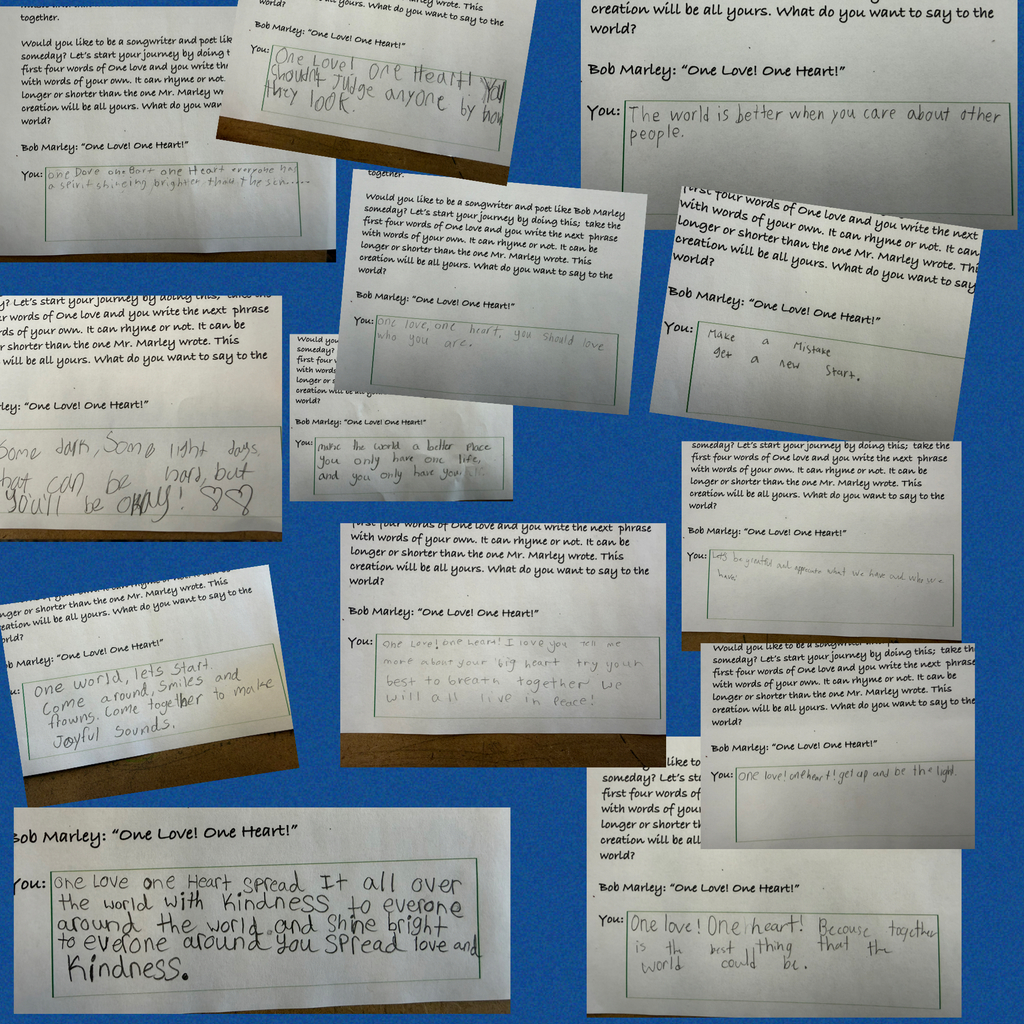 together.
Would you like to be a songwriter and poet lik
someday? Let's start your journey by doing t
first four words of One love and you write the
with words of your own. It can rhyme or not.
longer or shorter than the one Mr. Marley wr
creation will be all yours. What do you wan
world?
Bob Marley: "One Love! One Heart!"
You:
one Dove one Bort one Heart everyone has
a spirit shineing brighter than the sin.....
longer or shorter than the one Mr. Marley wrote. This
creation will be all yours. What do you want to say to the
world?
Bob Marley: "One Love! One Heart!"
You:
One Love! One Heart! You
shouldn't judge anyone by how
they look.
creation will be all yours. What do you want to say to the
world?
Bob Marley: "One Love! One Heart!"
You:
The world is better when you care about other
people.
together.
Would you like to be a songwriter and poet like Bob Marley
someday? Let's start your journey by doing this; take the
first four words of One love and you write the next phrase
with words of your own. It can rhyme or not. It can be
longer or shorter than the one Mr. Marley wrote. This
creation will be all yours. What do you want to say to the
world?
Bob Marley: "One Love! One Heart!"
You:
one love, one heart, you should love
who you are.
first four words of One love and you write the next
with words of your own. It can rhyme or not. It can
longer or shorter than the one Mr. Marley wrote. Thi
creation will be all yours. What do you want to say
world?
Bob Marley: "One Love! One Heart!"
You:
Make a Mistake
get a new start.
y? Let's start your journey by doing this; take the
r words of One love and you write the next phrase
ds of your own. It can rhyme or not. It can be
r shorter than the one Mr. Marley wrote. This
will be all yours. What do you want to say to the
ley: "One Love! One Heart!"
Some dark, Some light days.
that can be hard, but
You'll be okay!
Would you
someday?
first four
with words
longer or
creation will be all
world?
Bob Marley: "One Love! One Heart!"
You:
make the world a better place
you only have one life,
and you only have you.
someday? Let's start your journey by doing this; take the
first four words of One love and you write the next phrase
with words of your own. It can rhyme or not. It can be
longer or shorter than the one Mr. Marley wrote. This
creation will be all yours. What do you want to say to the
world?
Bob Marley: "One Love! One Heart!"
You:
Lets be greatful and appreciate what we have and who we
have.
first four words of One love and you write the next phrase
with words of your own. It can rhyme or not. It can be
longer or shorter than the one Mr. Marley wrote. This
creation will be all yours. What do you want to say to the
world?
Bob Marley: "One Love! One Heart!"
You:
One Love! one hearn! I love you tell me
more about your big heart try your
best to breath together we
will all live in Peace!
nger or shorter than the one Mr. Marley wrote. This
eation will be all yours. What do you want to say to the
orld?
ob Marley: "One Love! One Heart!"
One world, lets start.
Come around, smiles and
frowns. Come together to make
Joyful Sounds.
Would you like to be a songwriter and poet like Bob Marley
someday? Let's start your journey by doing this; take th
first four words of One love and you write the next phrase
with words of your own. It can rhyme or not. It can be
longer or shorter than the one Mr. Marley wrote. This
creation will be all yours. What do you want to say to the
world?
Bob Marley: "One Love! One Heart!"
You:
One love! one heart! get up and be the light.
Bob Marley: "One Love! One Heart!"
You:
One Love one Heart Spread It all over
the world with Kindness to everone
around the world and Shine bright
to everone around you Spread love and
Kindness.
like to
someday? Let's st
first four words of
with words of your
longer or shorter th
creation will be all
world?
Bob Marley: "One Love! One Heart!"
You:
One love! One heart! Because together
is the best thing that the
world could be.